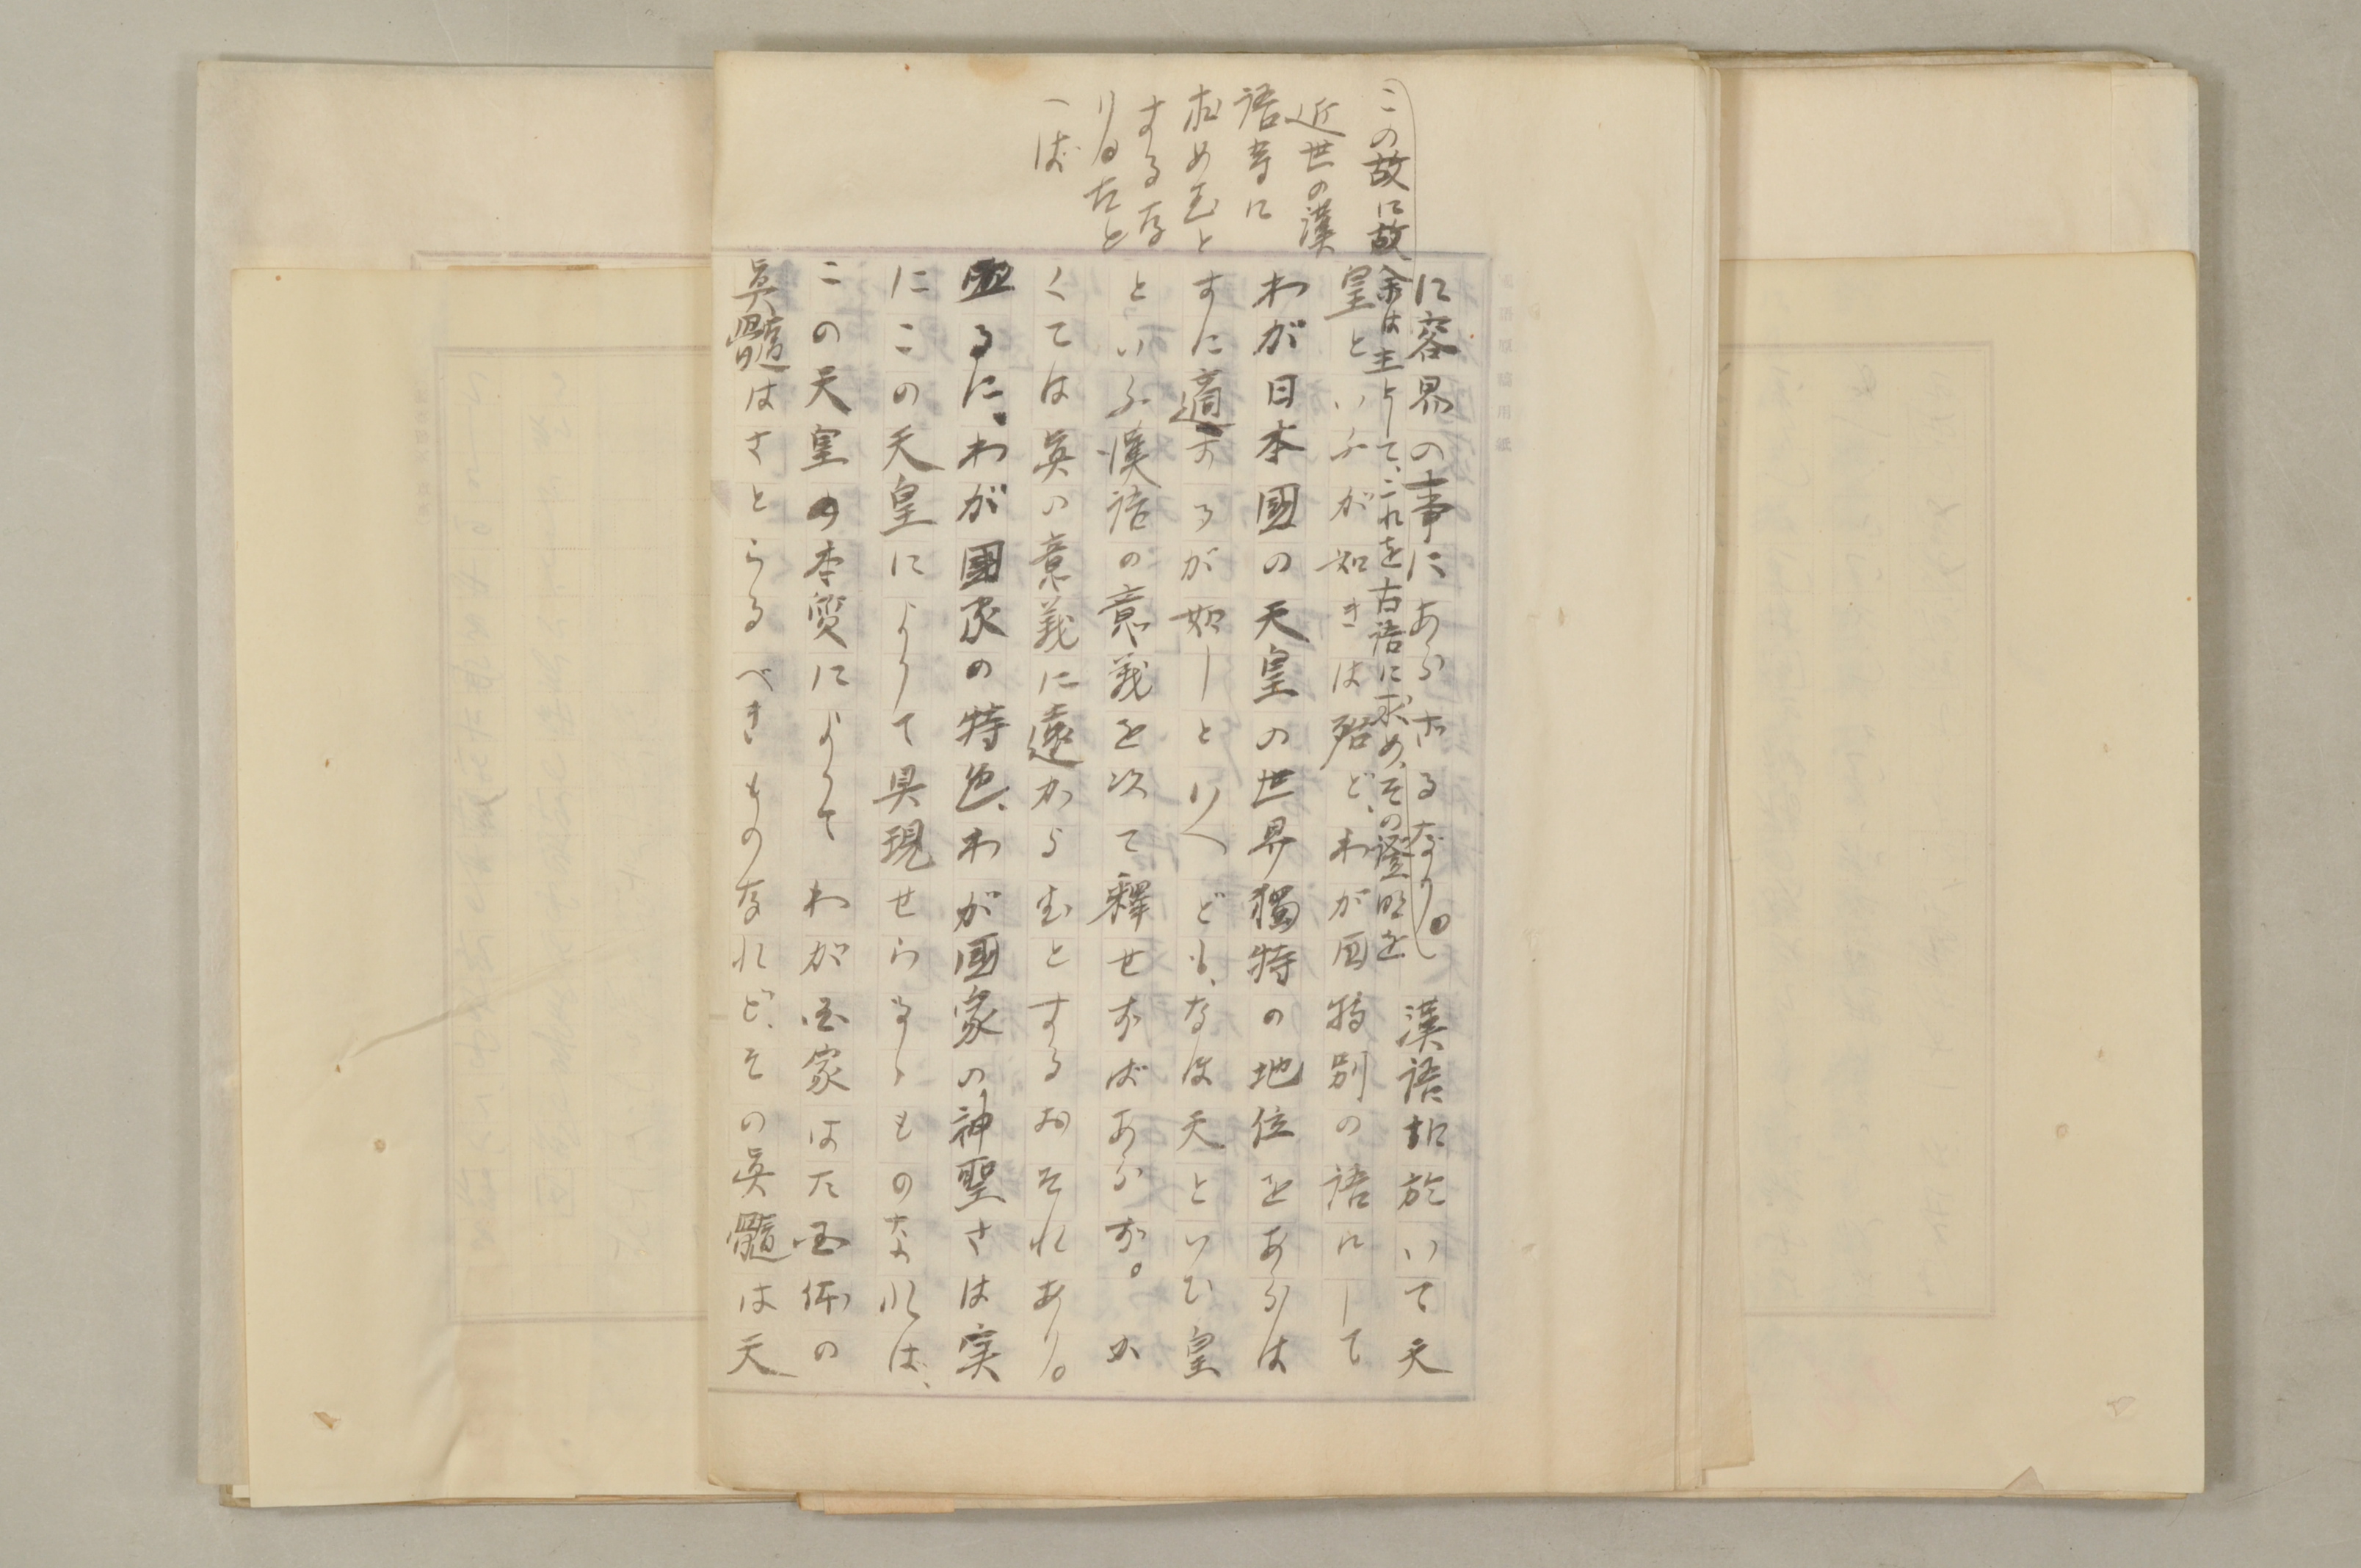 この故に故余は主として、これを古語に求め、その證明を
近世の漢
語等に
求めむと
するな
りたと
へば
に容易の事にあらざるなり。漢語に於いて天
皇といふが如きは殆ど、わが国特別の語にして
わが日本國の天皇の世界獨特の地位をあらは
すに適するが如しといへども、なほ天といひ皇
といふ漢語の意義を以て釋せずばあらず。か
くては眞の意義に遠からむとするおそれあり。
るに、わが國家の特色、わが国家の神聖さは実
にこの天皇によりて具現せらるゝものなれば、
この天皇の本質によりてわが国家はた国体の
眞髓はさとらるべきものなれど、その眞髓は天